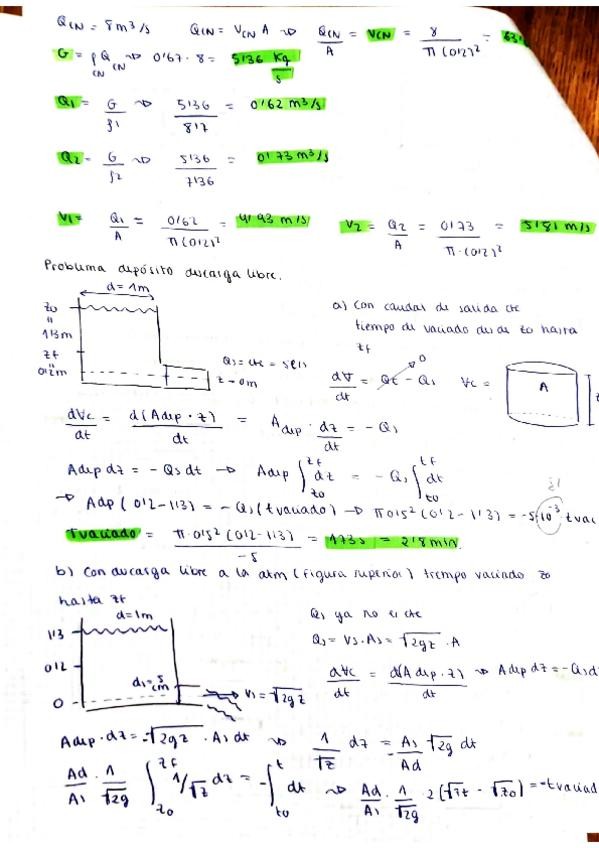 Q_CN = 8 m³/s   Q_CN = V_CN A ⇝ Q_CN/A = V_CN = 8/(π(0'2)²) =
G = ρ_CN Q_CN ⇝ 0'67 · 8 = 5'36 Kg/s
Q1 = G/ρ1 ⇝ 5'36/8'7 = 0'62 m³/s
Q2 = G/ρ2 ⇝ 5'36/7'36 = 0'73 m³/s
V1 = Q1/A = 0'62/(π(0'2)²) = 4'93 m/s   V2 = Q2/A = 0'73/(π·(0'2)²) = 5'81 m/s
Problema depósito descarga libre.
d = 1m
z0 = 1'3m
zf = 0'2m
Qs = cte = 5 l/s
z = 0m
a) Con caudal de salida cte
tiempo de vaciado desde z0 hasta
zf
d∀/dt = Qe - Qs   ∀c =   A
0
d∀c/dt = d(Adep · z)/dt = Adep · dz/dt = - Qs
Adep dz = - Qs dt → Adep ∫_z0^zf dz = - Qs ∫_t0^tf dt
→ Adp (0'2 - 1'3) = - Qs (tvaciado) → π 0'5² (0'2 - 1'3) = -5·10⁻³ tvac
Tvaciado = π·0'5² (0'2 - 1'3)/-5 = 173s = 2'8 min.
b) Con descarga libre a la atm (figura superior) tiempo vaciado z0
hasta zf
d = 1m
1'3
0'2
0
ds = 5 cm
Vs = √2gz
Qs ya no es cte
Qs = Vs · As = √2gz · A
d∀c/dt = d(A dep · z)/dt ⇝ Adep dz = - Qs d
Adep · dz = -√2gz · As dt ⇝ 1/√z dz = - As/Ad √2g dt
Ad/As · 1/√2g ∫_z0^zf 1/√z dz = - ∫_t0^t dt ⇝ Ad/As · 1/√2g · 2(√zf - √z0) = - tvaciad